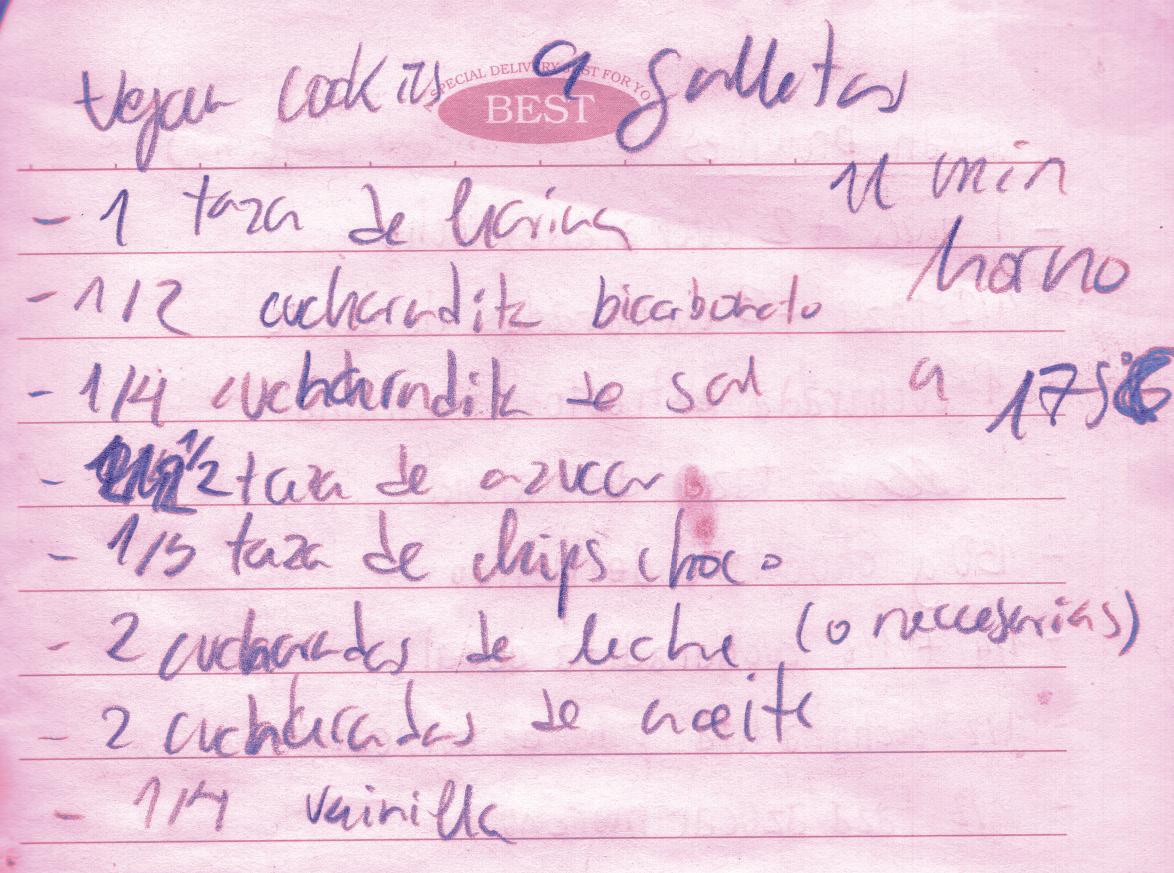 Vegan cookies 9 galletas
A SPECIAL DELIVERY JUST FOR YO
BEST
- 1 taza de harina 11 min
- 1/2 cucharadita bicarbonato horno
- 1/4 cucharadita de sal a 175°C
- 1/2 taza de azucar
- 1/3 taza de chips choco
- 2 cucharadas de leche (o neccesarias)
- 2 cucharadas de aceite
- 1/4 vainilla